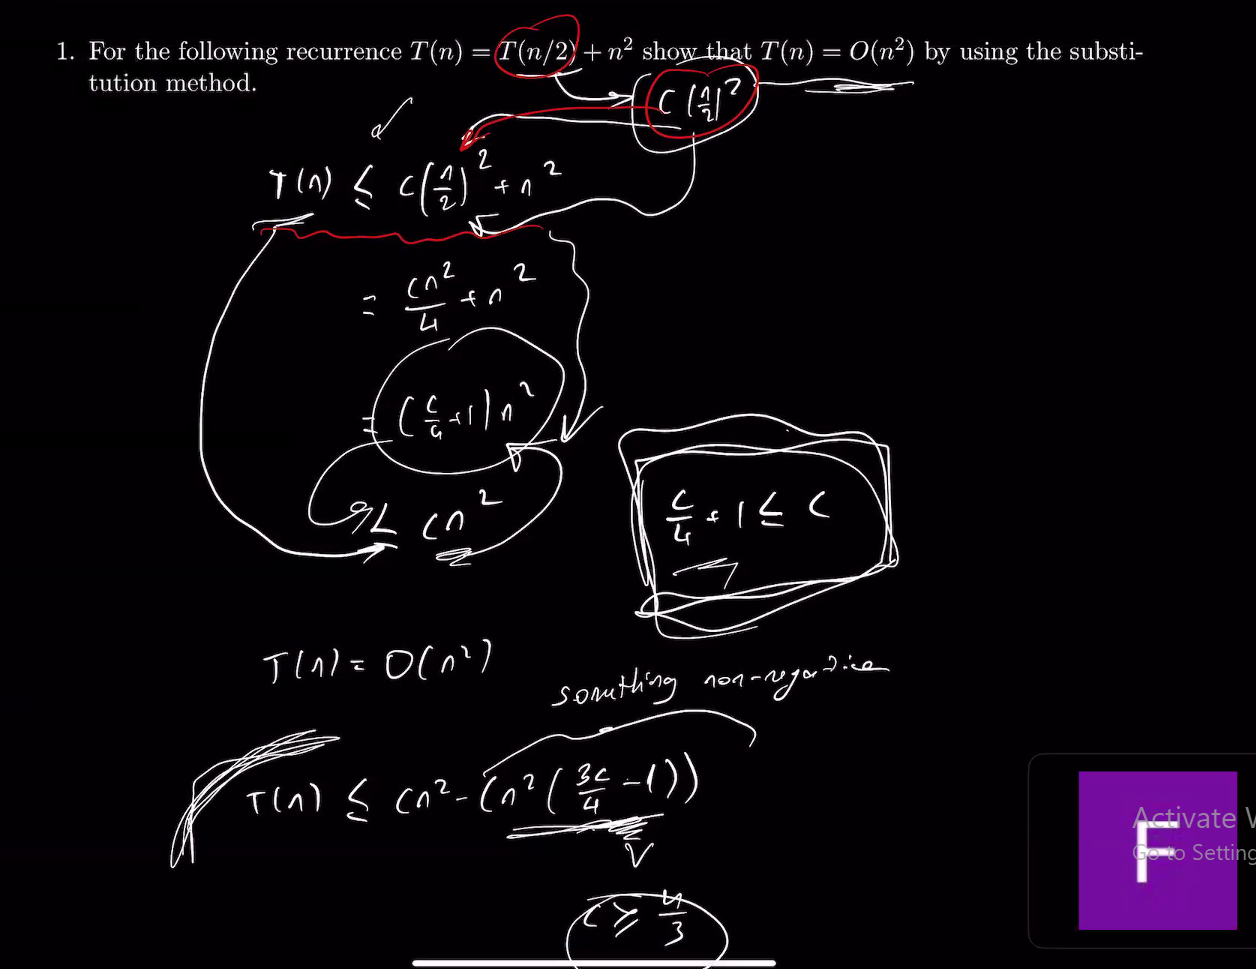 1. For the following recurrence T(n) = T(n/2) + n² show that T(n) = O(n²) by using the substi-
tution method.
C(n/2)²
T(n) ≤ C(n/2)² + n²
= cn²/4 + n²
= (c/4 + 1) n²
≤ cn²
c/4 + 1 ≤ c
T(n) = O(n²)
something non-negative
T(n) ≤ cn² - (n² (3c/4 - 1))
c ≥ 4/3
F
Activate
Go to Setting